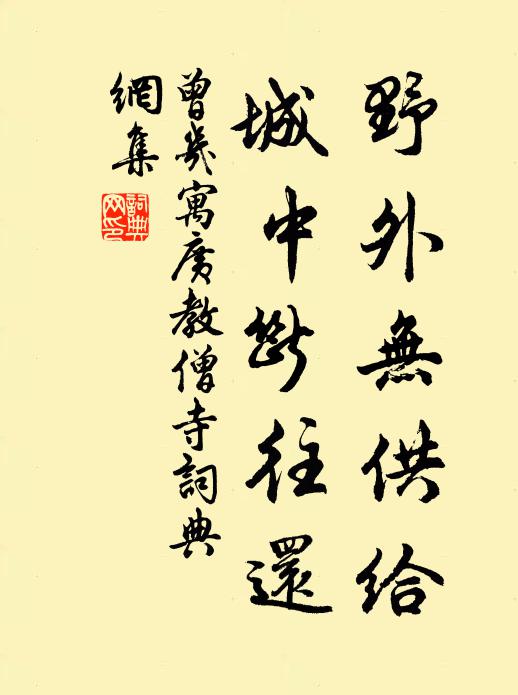 野外無供給
城中斷往還
曾幾寓廣教僧寺詞典
網集
詞典
网印